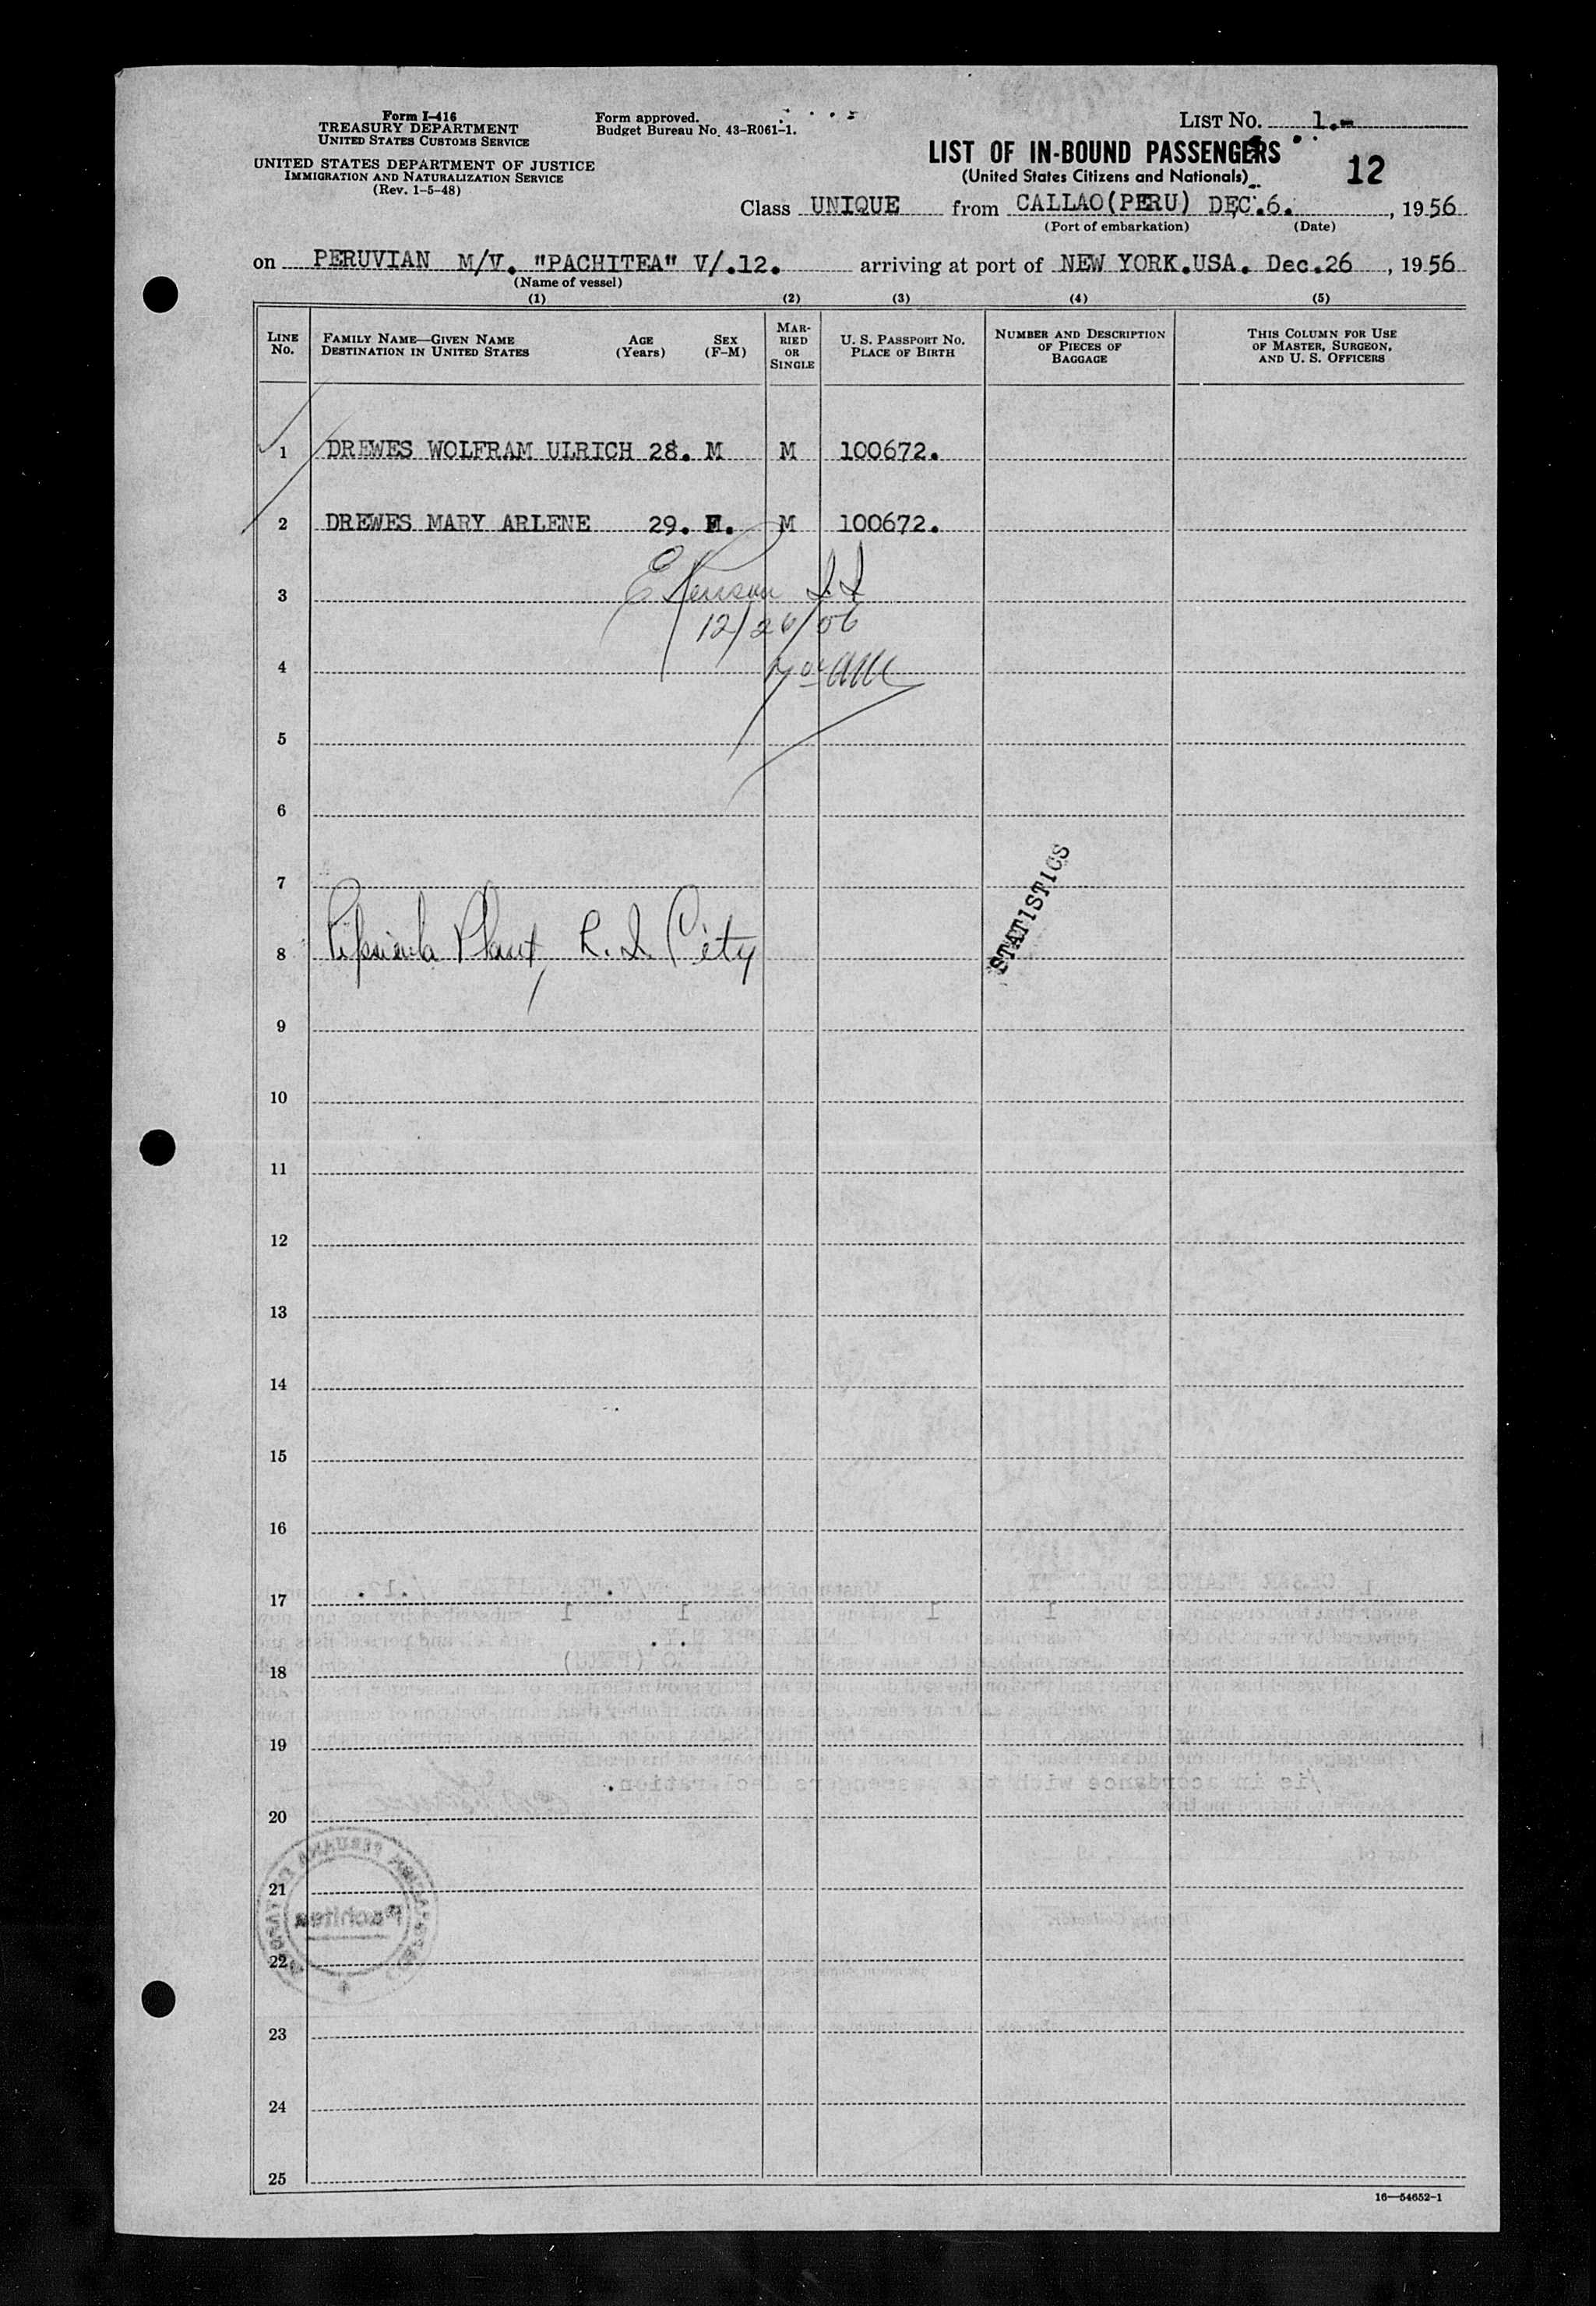 Form I-416
TREASURY DEPARTMENT
UNITED STATES CUSTOMS SERVICE
UNITED STATES DEPARTMENT OF JUSTICE
IMMIGRATION AND NATURALIZATION SERVICE
(Rev. 1-5-48)
Form approved.
Budget Bureau No. 43-R061-1.
LIST NO. 1.-
LIST OF IN-BOUND PASSENGERS
(United States Citizens and Nationals)
12
Class UNIQUE from CALLAO(PERU) DEC.6. , 1956
(Port of embarkation) (Date)
on PERUVIAN M/V. "PACHITEA" V/.12. arriving at port of NEW YORK.USA. Dec.26 , 1956
(Name of vessel)
(1) (2) (3) (4) (5)
LINE No.
FAMILY NAME—GIVEN NAME
DESTINATION IN UNITED STATES
AGE (Years)
SEX (F-M)
MAR-RIED OR SINGLE
U. S. PASSPORT NO.
PLACE OF BIRTH
NUMBER AND DESCRIPTION OF PIECES OF BAGGAGE
THIS COLUMN FOR USE OF MASTER, SURGEON, AND U. S. OFFICERS
1 DREWES WOLFRAM ULRICH 28. M M 100672.
2 DREWES MARY ARLENE 29. F. M 100672.
3
12/26/56
4
5
6
7
STATISTICS
8 Plant, L. I. City
9
10
11
12
13
14
15
16
17
18
19
20
21
Pachitea
22
23
24
25
16—54652-1